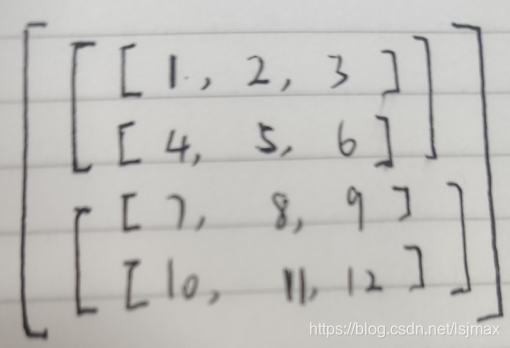 [ [ [ 1, 2, 3 ] ]
[ [ 4, 5, 6 ] ]
[ [ 7, 8, 9 ] ]
[ [ 10, 11, 12 ] ] ]
https://blog.csdn.net/lsjmax